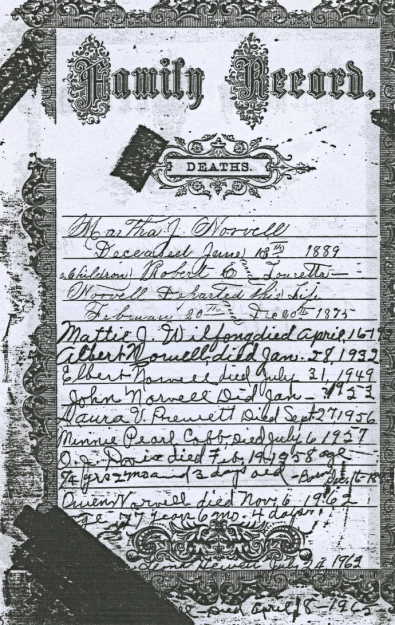 Family Record.
DEATHS.
Martha J. Norvell
Deceased June 13th 1889
Children Robert C Loucetta
Norvell Departed this Life
February 20th Dec 20th 1875
Mattie J. Wilfong died April, 16
Albert Norvell, died Jan. 28, 1932
Elbert Norvell died July 31, 1949
John Norvell Did Jan - 1953
Laura V. Prewett Died Sept 27 1956
Minnie Pearl Cobb, Died July 6, 1957
O. J. Davis died Feb, 19, 1958 age
74 yrs 2 mo and 3 days old - Born Dec. 16
Owen Norvell died Nov. 6, 1962
age - 77 year 6 mo. 4 days
July 1962
Died April 8 - 1965